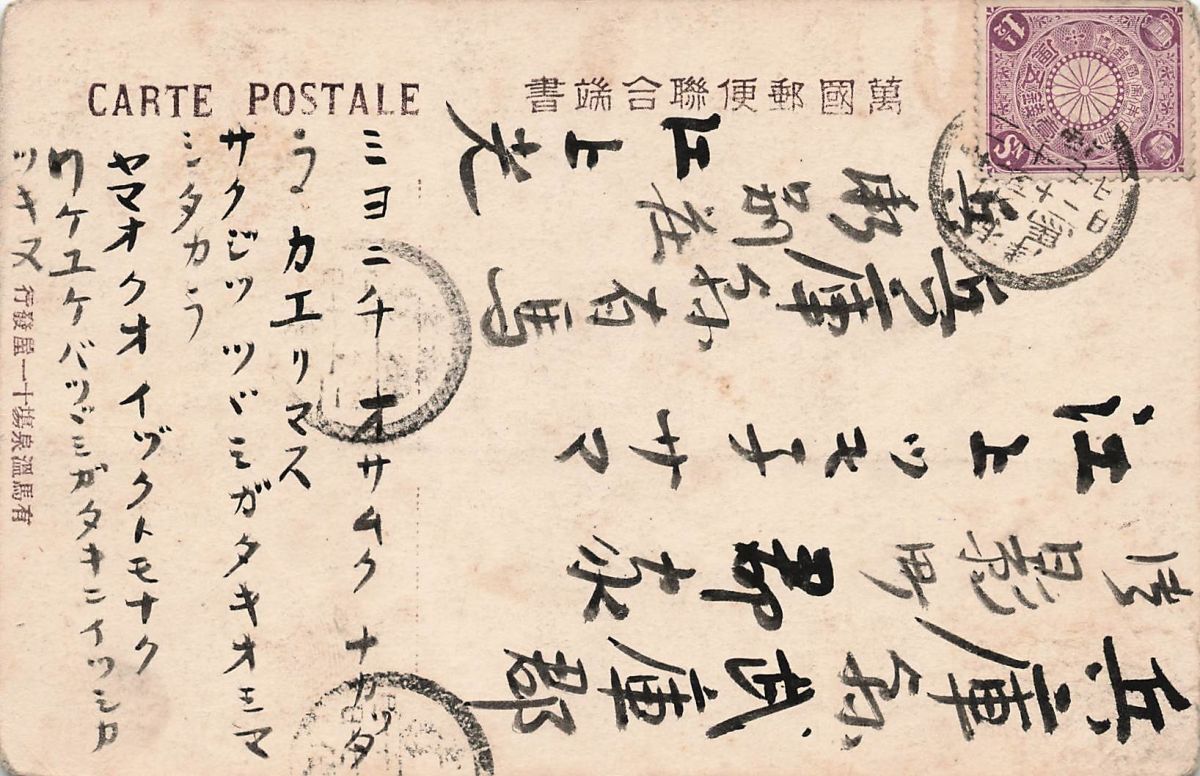 CARTE POSTALE
萬國郵便聯合端書
兵庫縣武庫郡
御影町郡家
江上ツ子サマ
兵庫縣有馬
兵衛別莊
江上
ミヨニチ オサムク ナカッタ
ラ カエリマス
サクジツ ツヾミガタキオミマ
シタカラ
ヤマオクオ イヅクトモナク
ワケユケバツヾミガタキニイツシカ
ツキヌ
有馬溫泉場十一屋發行
1½ Sn